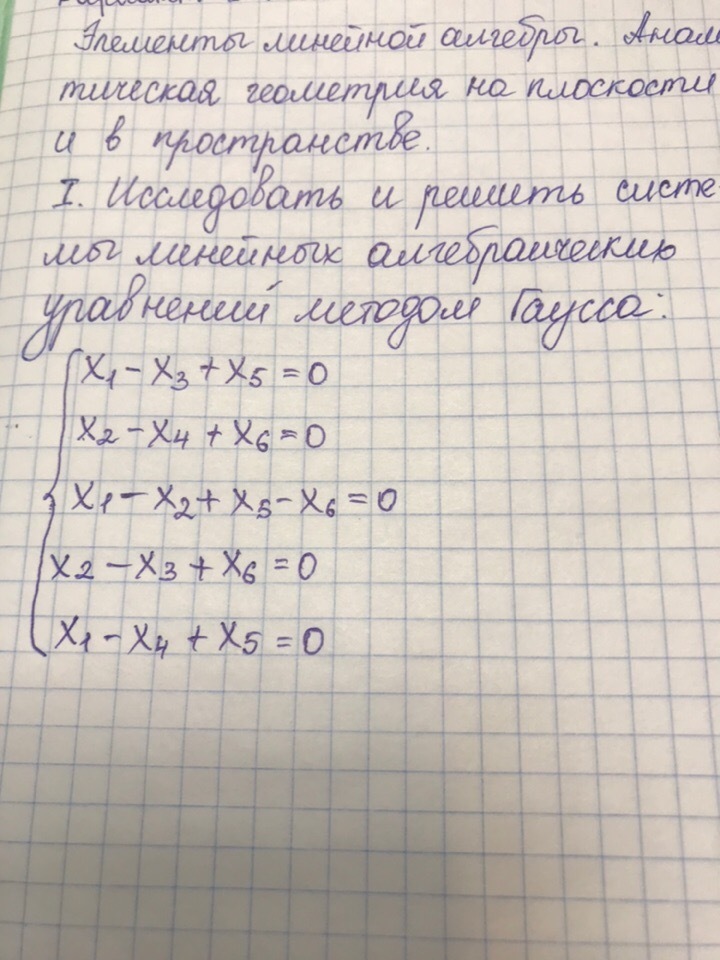 Элементы линейной алгебры. Анали
тическая геометрия на плоскости
и в пространстве.
I. Исследовать и решить систе-
мы линейных алгебраических
уравнений методом Гаусса:
x₁ - x₃ + x₅ = 0
x₂ - x₄ + x₆ = 0
x₁ - x₂ + x₅ - x₆ = 0
x₂ - x₃ + x₆ = 0
x₁ - x₄ + x₅ = 0